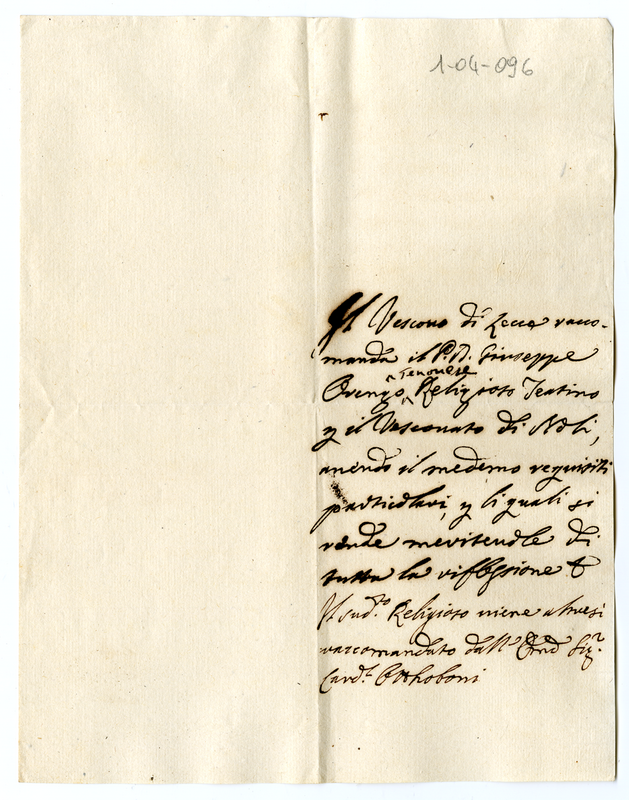 1-04-096
Il Vescouo di Lecce racco-
manda il P. D. Giuseppe
Genouese
Orengo, Religioso Teatino
p il Vescouato di Noli,
auendo il medemo requisiti
particolari, p li quali si
rende meriteuole di
tutta la riflessione &
Il sud.to Religioso uiene altresi
raccomandato dall' Sig.r
Card.l Otthoboni